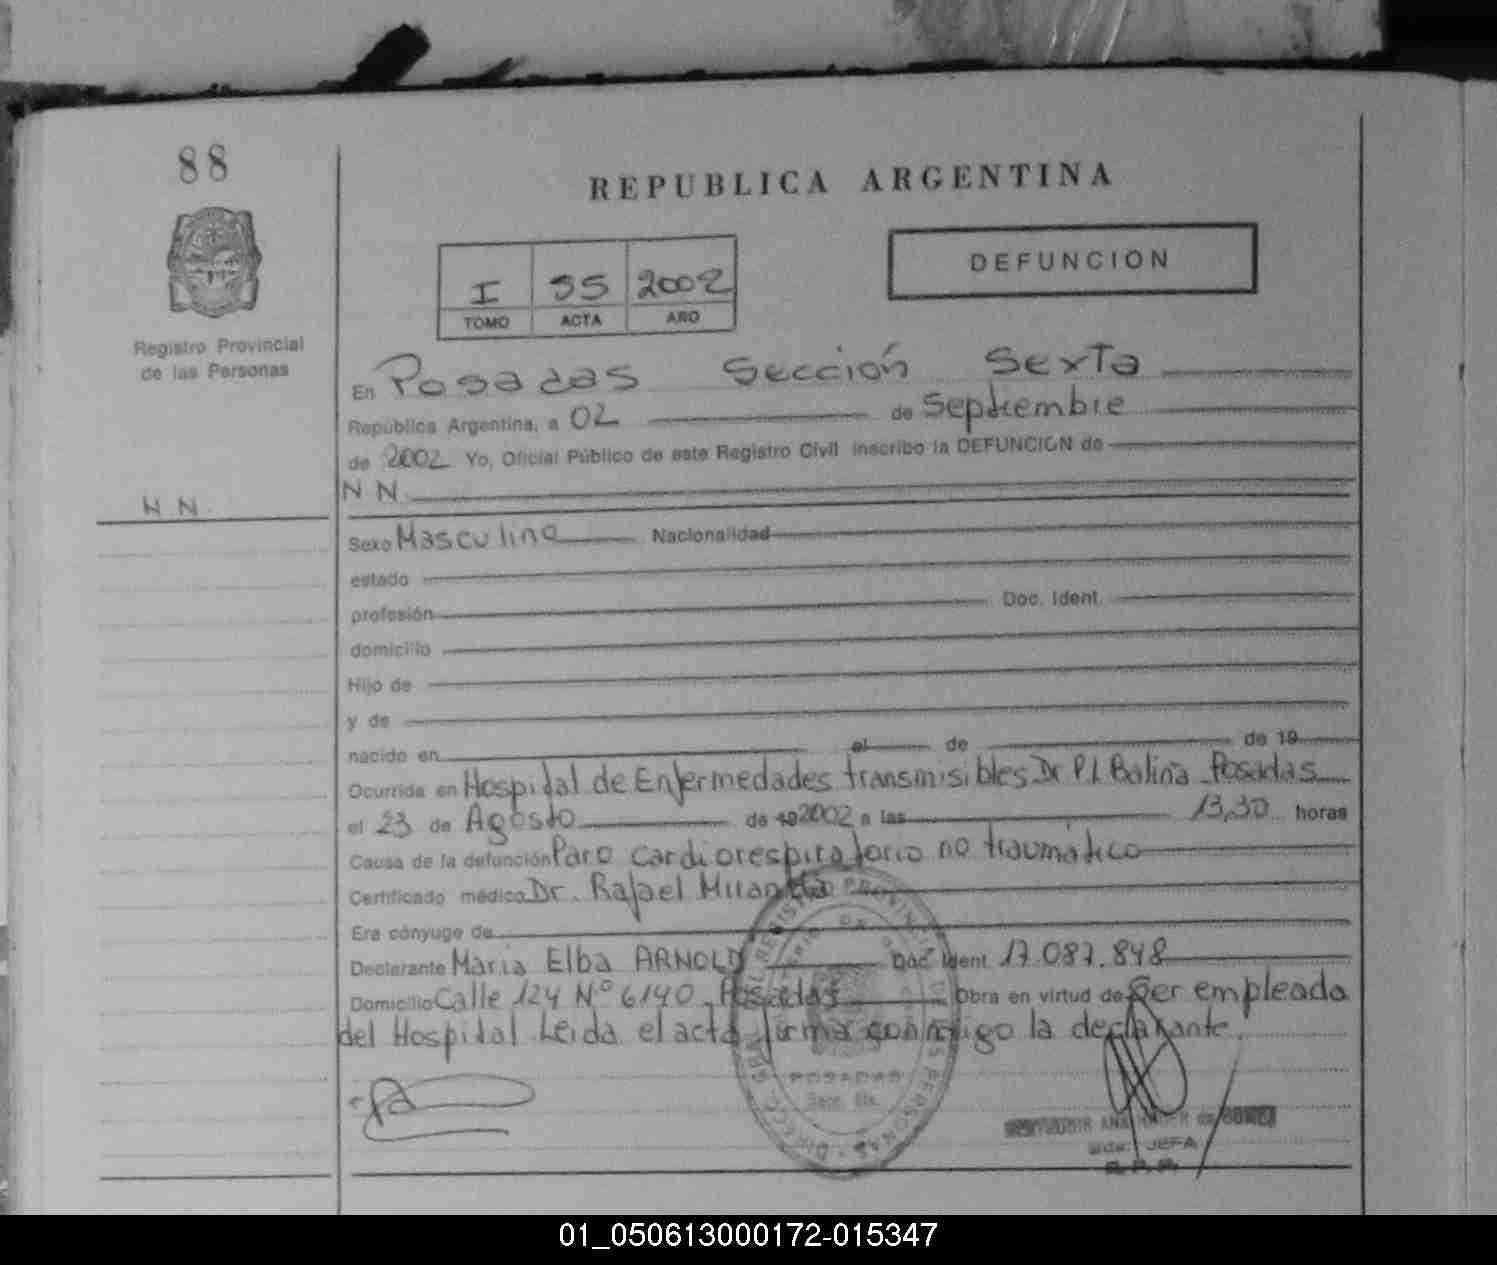 88
REPUBLICA ARGENTINA
DEFUNCION
I 55 2002
TOMO ACTA AÑO
Registro Provincial
de las Personas
En Posadas Sección Sexta
República Argentina, a 02 de Septiembre
de 2002 Yo, Oficial Público de este Registro Civil inscribo la DEFUNCION de
N N.
N N.
Sexo Masculino Nacionalidad
estado
profesión Doc. Ident.
domicilio
Hijo de
y de
nacido en el de de 19
Ocurrida en Hospital de Enfermedades transmisibles Dr P.L Baliña Posadas
el 23 de Agosto de 19 2002 a las 13,30 horas
Causa de la defunción Paro cardiorespiratorio no traumático
Certificado médico Dr. Rafael
Era cónyuge de
Declarante Maria Elba ARNOLD Doc. Ident. 17.087.848
Domicilio Calle 124 Nº 6140 Posadas Obra en virtud de Ser empleada
del Hospital Leida el acta firma conmigo la declarante.
POSADAS
Secc. 6ta.
JEFA
R. P. P.
01_050613000172-015347